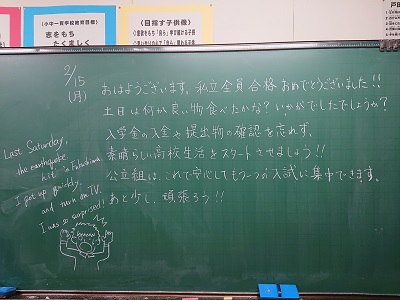 (小中一貫学校教育目標)
志をもち
たくましく
(目指す子供像)
2/15
(月)
おはようございます。私立全員合格おめでとうございました!!
土日は何か良い物食べたかな?いかがでしたでしょうか?
入学金の入金や提出物の確認を忘れず、
素晴らしい高校生活をスタートさせましょう!!
公立組は、これで安心してもう一つの入試に集中できます。
あと少し、頑張ろう!!
Last Saturday,
the earthquake
hit in Fukushima.
I got up quickly,
and turn on TV.
I was so surprised!